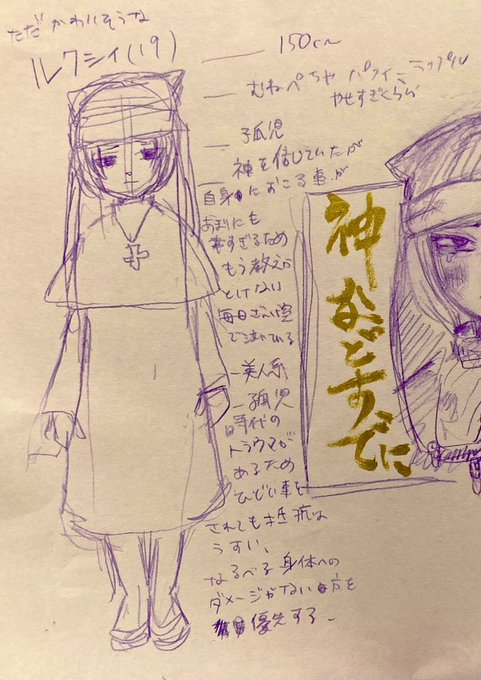 ただかわいそうな
ルクシィ(19)
150cm
むねぺちゃ パフィーニップル
やせすぎくらい
孤児
神を信じていたが
自身におこる事が
あまりにも
辛すぎるため
もう教えが
とけない
毎日ざんげ室
で泣いている
美人系
孤児
時代の
トラウマが
あるため
ひどい事を
されても抵抗は
うすい、
なるべく身体への
ダメージがない方を
優先する。
神などすでに